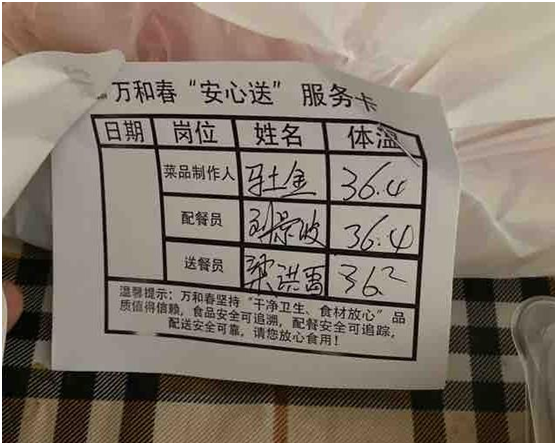 万和春“安心送”服务卡
日期 岗位 姓名 体温
菜品制作人 36.4
配餐员 36.4
送餐员 36.2
温馨提示：万和春坚持“干净卫生、食材放心”品
质值得信赖，食品安全可追溯，配餐安全可追踪，
配送安全可靠，请您放心食用！